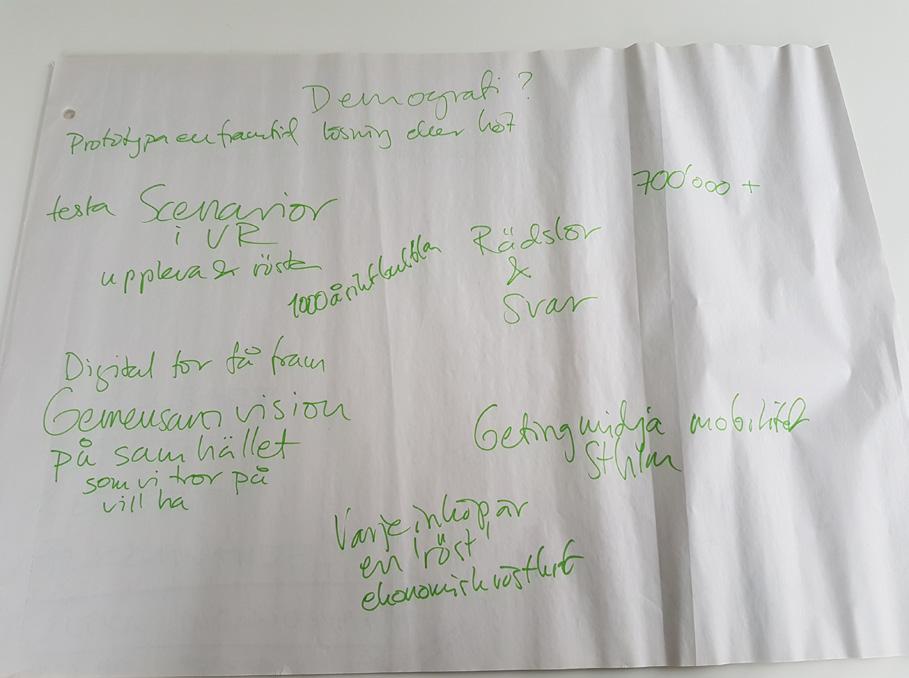 Demografi?
Prototypa en framtid lösning eller hot
700'000 +
testa Scenarior
i VR
uppleva & rösta
1000
Rädslor
&
Svar
Digital för få fram
Gemensam vision
på samhället
som vi tror på
vill ha
Getingmidja mobilitet
Sthlm
Varje inköp är
en 'röst'
ekonomisk rösträtt